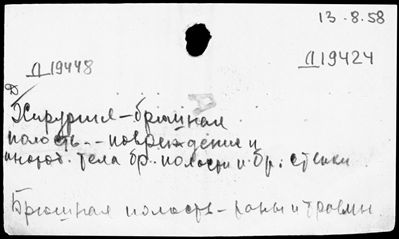 13.8.58
Д19448
Д19424
Д
Хирургия – брюшная
полость. – повреждения и
инород. тела бр. полости и бр. стенки
Брюшная полость – раны и травмы